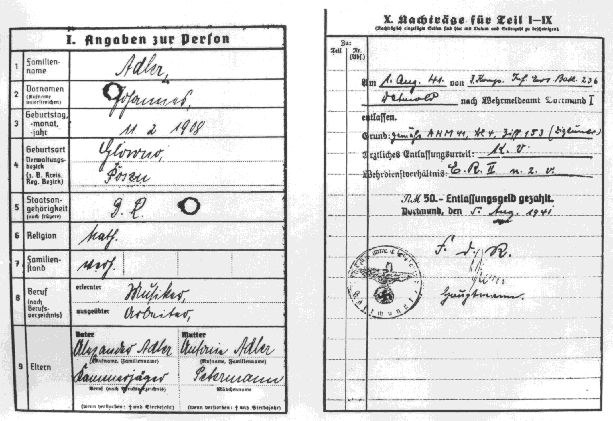 I. Angaben zur Person
1 Familien-
name
Adler,
2 Vornamen
(Rufname
unterstreichen)
Johannes,
3 Geburtstag,
-monat,
-jahr
11. 2 1908
4 Geburtsort
Verwaltungs-
bezirk
(z. B. Kreis,
Reg. Bezirk)
Glowno,
Posen
5 Staatsan-
gehörigkeit
(auch frühere)
D. R.
6 Religion
kath.
7 Familien-
stand
verh.
8 Beruf
(nach
Berufs-
verzeichnis)
erlernter
Musiker,
ausgeübter
Arbeiter,
9 Eltern
Vater
Alexander Adler
(Rufname, Familienname)
Kammerjäger
Beruf (nach Berufsverzeichnis)
(wenn verstorben: † und Sterbejahr)
Mutter
Antonie Adler
(Rufname, Familienname)
Petermann
Mädchenname
(wenn verstorben: † und Sterbejahr)
X. Nachträge für Teil I–IX
Zu:
Teil Nr.
Am 1. Aug. 41. von
Detmold nach Wehrmeldeamt Dortmund I
entlassen.
Grund: gemäß
Ärztliches Entlassungsurteil: K. V.
Wehrdienstverhältnis: E. R. II n. z. v.
RM 50.- Entlassungsgeld gezahlt.
Dortmund, den 5. Aug. 1941
F. d. R.
Hauptmann.